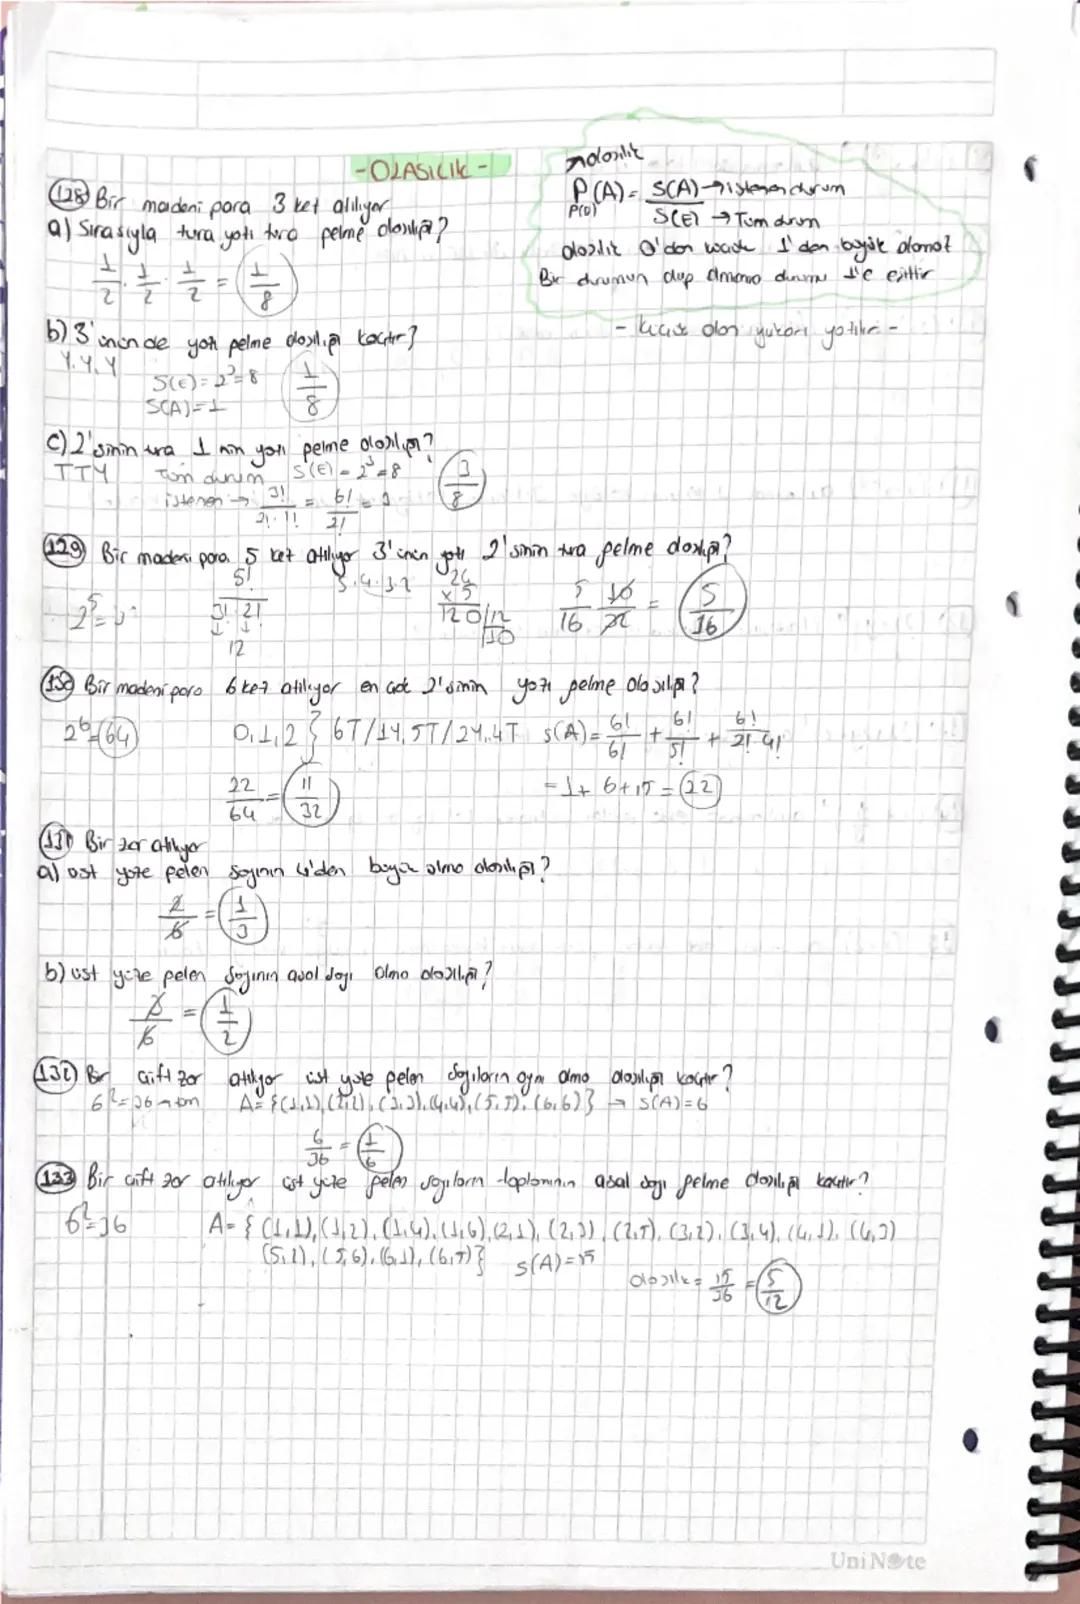 -OLASILIK-
olasılık
P(A)= S(A) → istenen durum
P(O) S(E) → Tüm durum
olasılık 0'dan küçük 1'den büyük olamaz
Bir durumun olup olmama durumu 1'e eşittir
- küçük olan yukarı yazılır -
128 Bir madeni para 3 kez atılıyor
a) Sırasıyla tura yazı tura gelme olasılığı?
1/2 . 1/2 . 1/2 = 1/8
b) 3'ününde yazı gelme olasılığı kaçtır?
Y.Y.Y
S(E)=2³=8 1/8
S(A)=1
c) 2'sinin tura 1 nin yazı gelme olasılığı?
TTY Tüm durum S(E)=2³=8 3/8
istenen → 3!/2!.1! = 6!/2! = 3
129 Bir madeni para 5 kez atılıyor 3'ünün yazı 2'sinin tura gelme olasılığı?
5! 5.4.3.2 24
2⁵= 3! 2! x5 5/16 10/32 = 5/16
120/12
12 10
130 Bir madeni para 6 kez atılıyor en çok 2'sinin yazı gelme olasılığı?
2⁶=64 0,1,2 } 6T/1Y,5T/2Y,4T S(A)= 6!/6! + 6!/5! + 6!/2! 4!
22/64 = 11/32 =1+6+15=22
131 Bir zar atılıyor
a) üst yüze gelen sayının 4'den büyük olma olasılığı?
2/6 = 1/3
b) üst yüze gelen sayının asal sayı olma olasılığı?
3/6 = 1/2
132 Bir çift zar atılıyor üst yüze gelen sayıların aynı olma olasılığı kaçtır?
6²=36 → tüm A={(1,1),(2,2),(3,3),(4,4),(5,5),(6,6)} → S(A)=6
6/36 = 1/6
133 Bir çift zar atılıyor üst yüze gelen sayıların toplamının asal sayı gelme olasılığı kaçtır?
6²=36 A={(1,1),(1,2),(1,4),(1,6),(2,1),(2,3),(2,5),(3,2),(3,4),(4,1),(4,3)
(5,2),(5,6),(6,1),(6,5)} S(A)=15
olasılık= 15/36 = 5/12
UniNote